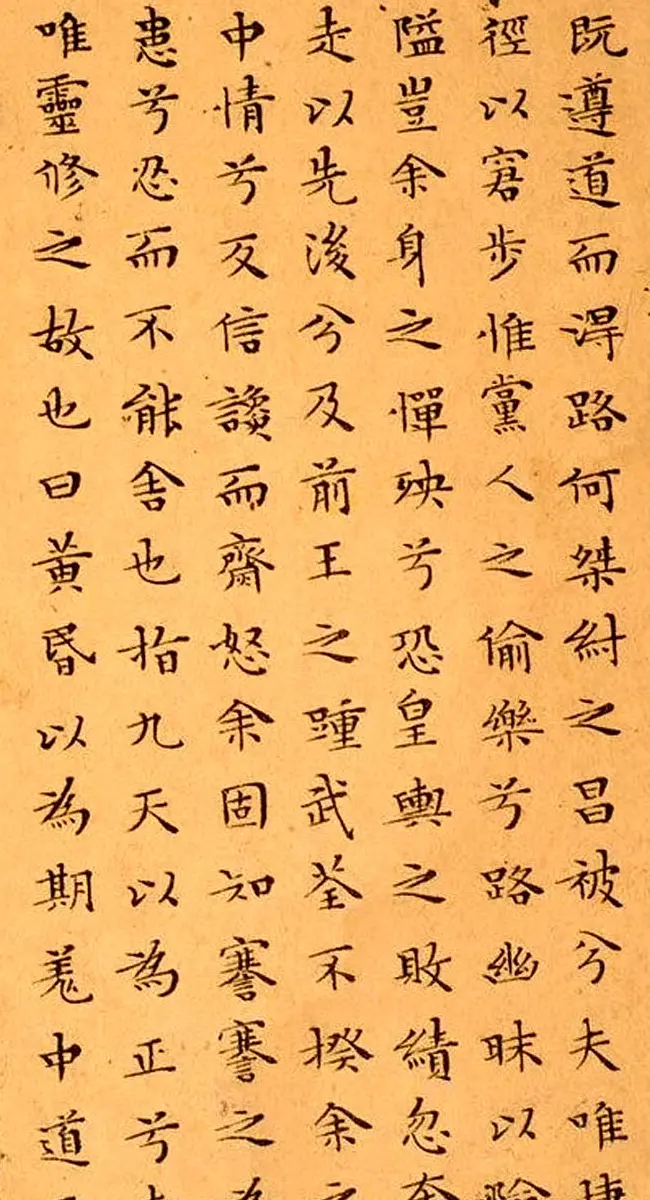 既遵道而得路何桀紂之昌被兮夫唯捷
徑以窘步惟黨人之偷樂兮路幽昧以險
隘豈余身之憚殃兮恐皇輿之敗績忽奔
走以先後兮及前王之踵武荃不揆余之
中情兮反信讒而齋怒余固知謇謇之為
患兮忍而不能舍也指九天以為正兮
唯靈修之故也曰黃昏以為期羌中道